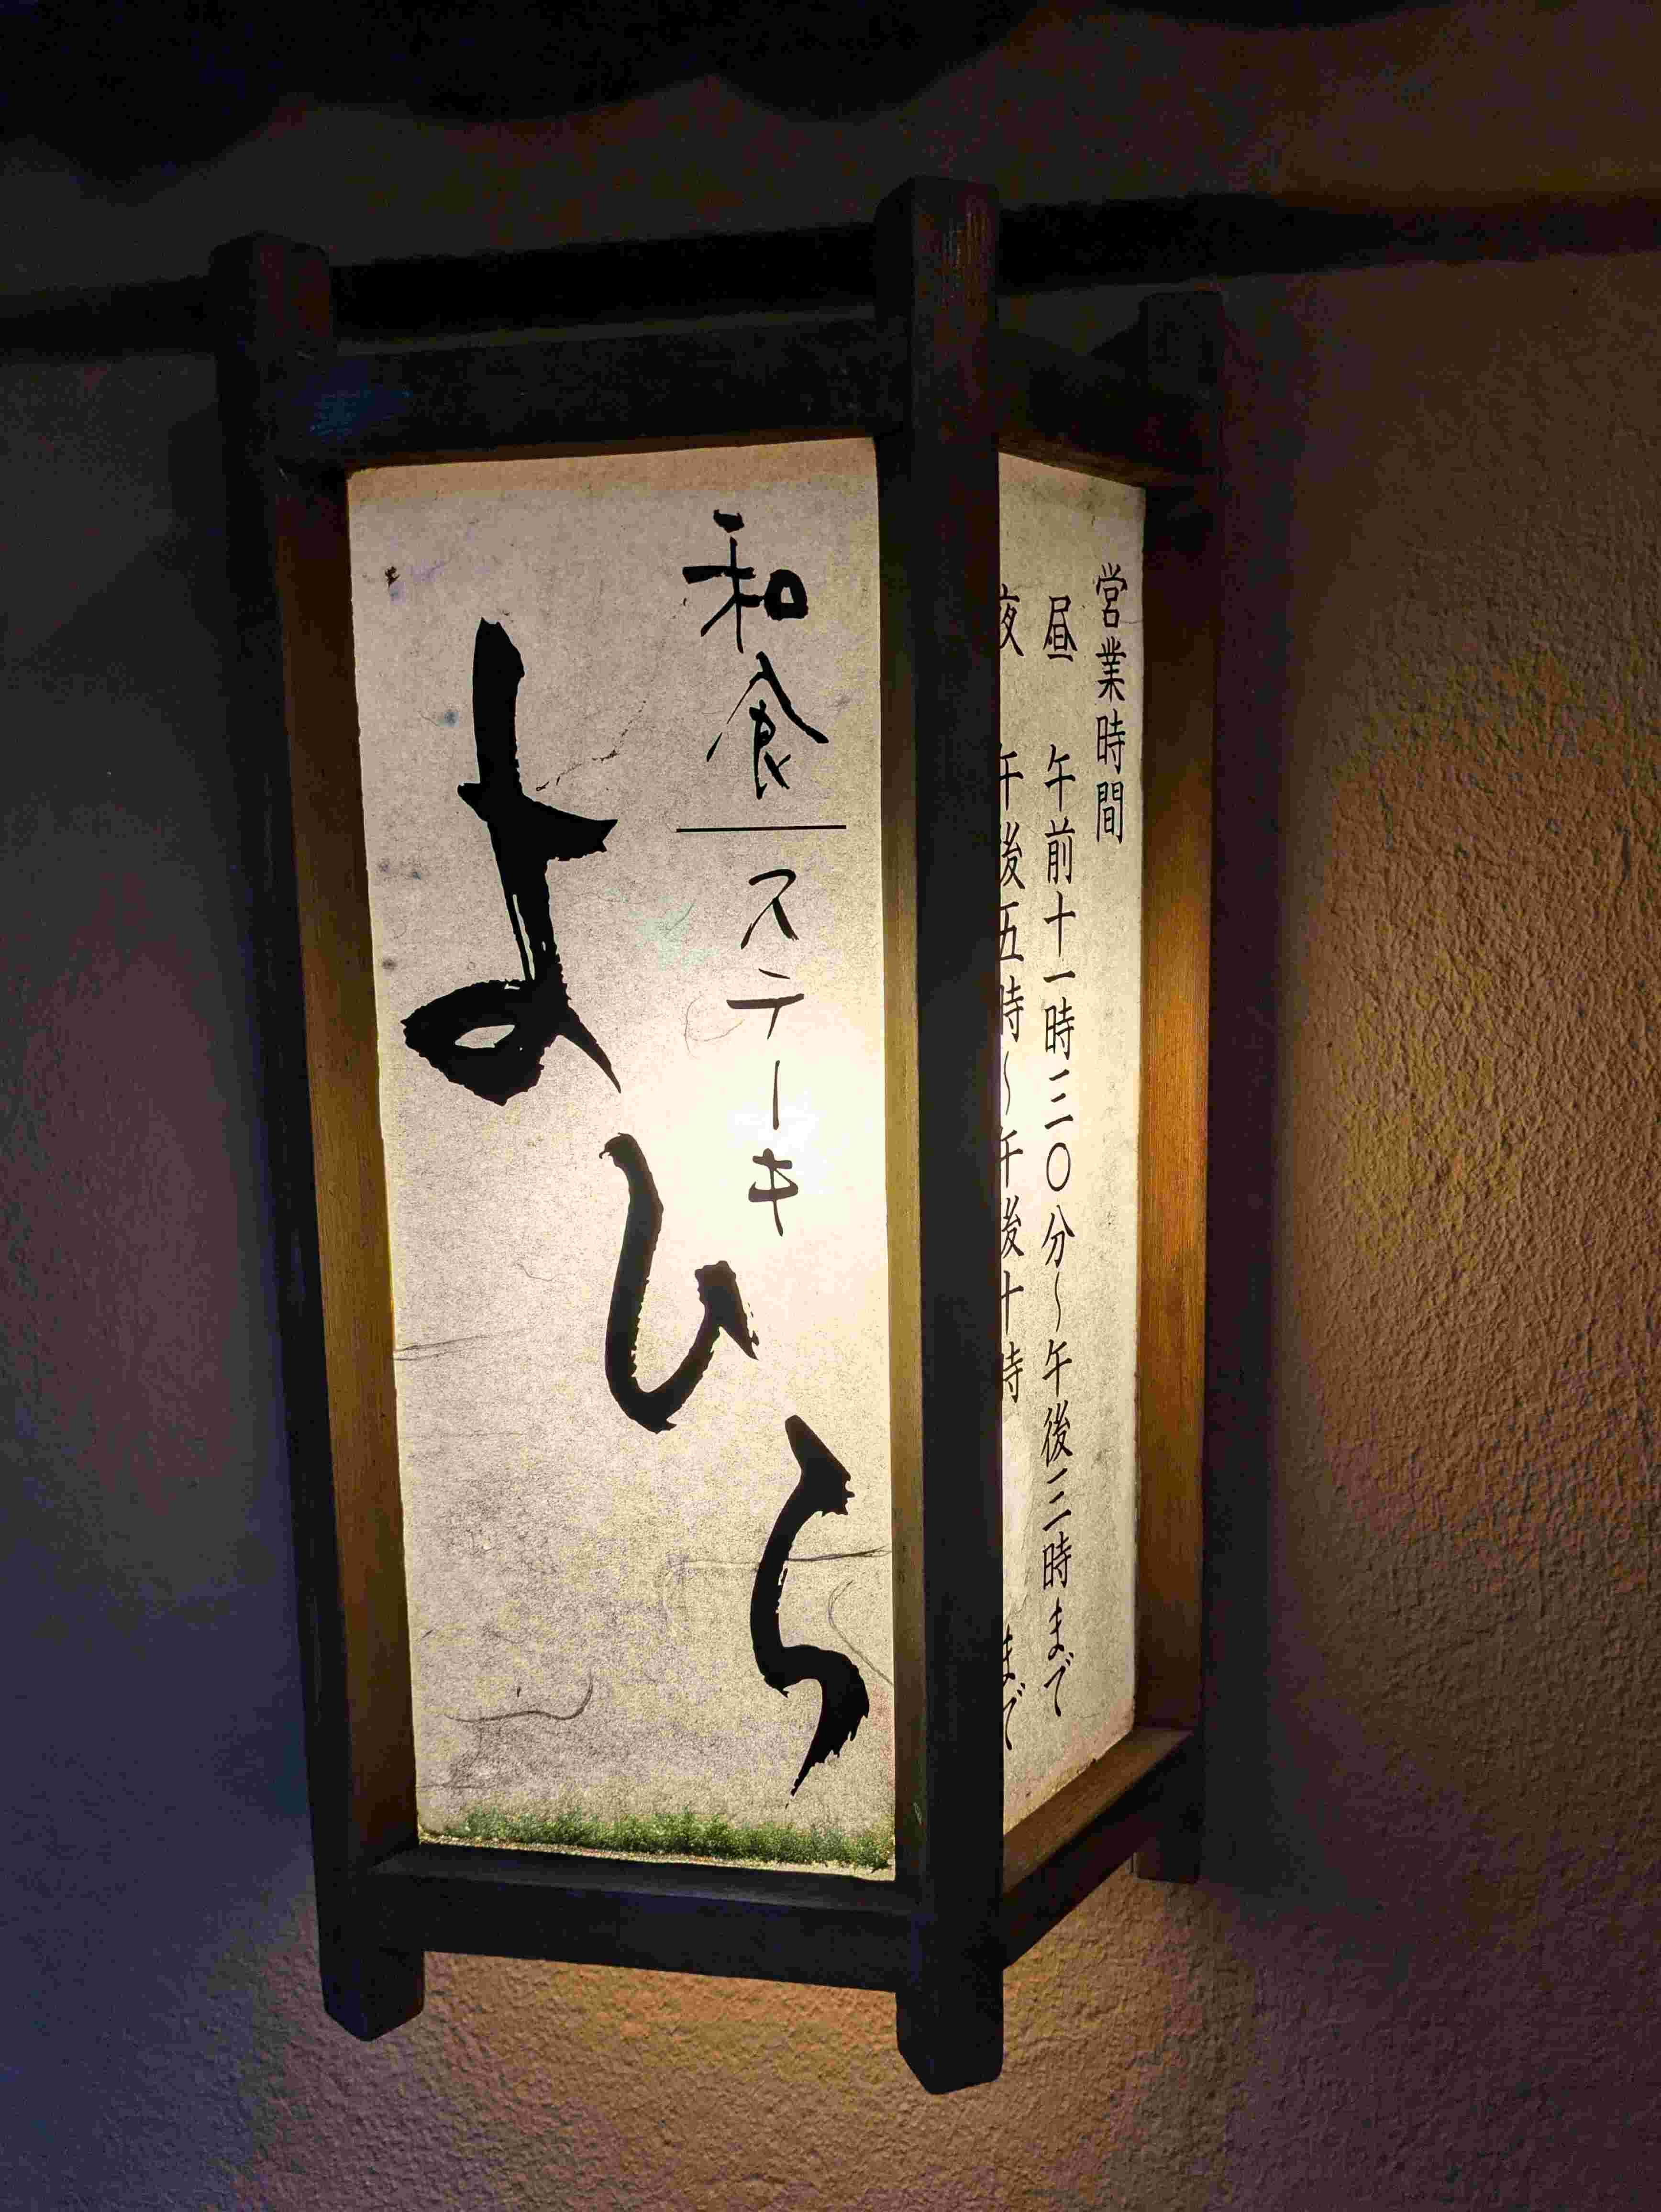 和食
ステーキ
よひら
営業時間
昼 午前十一時三〇分～午後三時まで
夜 午後五時～午後十時まで